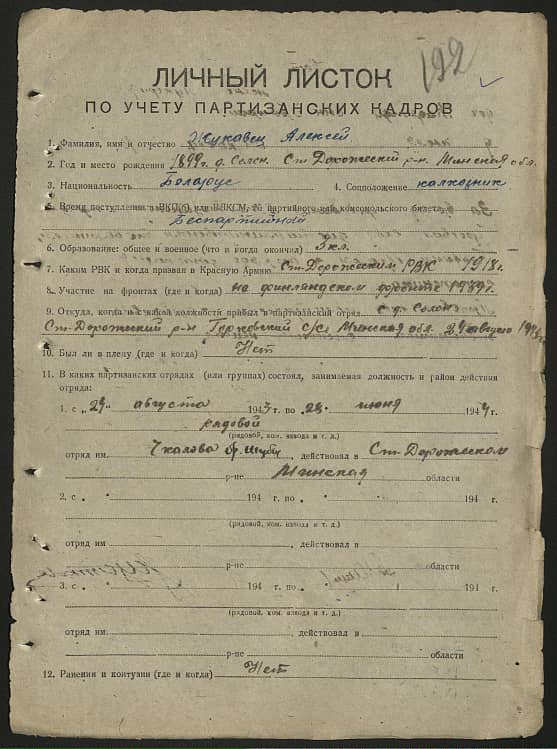 192
ЛИЧНЫЙ ЛИСТОК
ПО УЧЕТУ ПАРТИЗАНСКИХ КАДРОВ
1. Фамилия, имя и отчество Жуковец Алексей
2. Год и место рождения 1899 г. д. Солон. Ст. Дорожский р-н. Минская обл.
3. Национальность Беларус 4. Соцположение колхозник
5. Время поступления в ВКП(б) или ВЛКСМ, № партийного или комсомольского билета
Беспартийный
6. Образование: общее и военное (что и когда окончил) 3 кл.
7. Каким РВК и когда призван в Красную Армию Ст. Дорожским РВК 1918 г.
8. Участие на фронтах (где и когда) на финляндском фронте 1939 г.
9. Откуда, когда и с какой должности прибыл в партизанский отряд с д. Солон
Ст. Дорожский р-н с/с Минская обл. 24 августа
10. Был ли в плену (где и когда) Нет
11. В каких партизанских отрядах (или группах) состоял, занимаемая должность и район действия
отряда:
1. с „24“ августа 1943 г. по 28 июня 1944 г.
рядовой
(рядовой, ком. взвода и т. д.)
отряд им Чкалова бр. , действовал в Ст. Дорожском
р-не Минская области
2. с 194 г. по 194 г.
(рядовой, ком. взвода и т. д.)
отряд им , действовал в
р-не области
3. с 194 г. по 194 г.
(рядовой, ком. взвода и т. д.)
отряд им , действовал в
р-не области
12. Ранения и контузии (где и когда) Нет